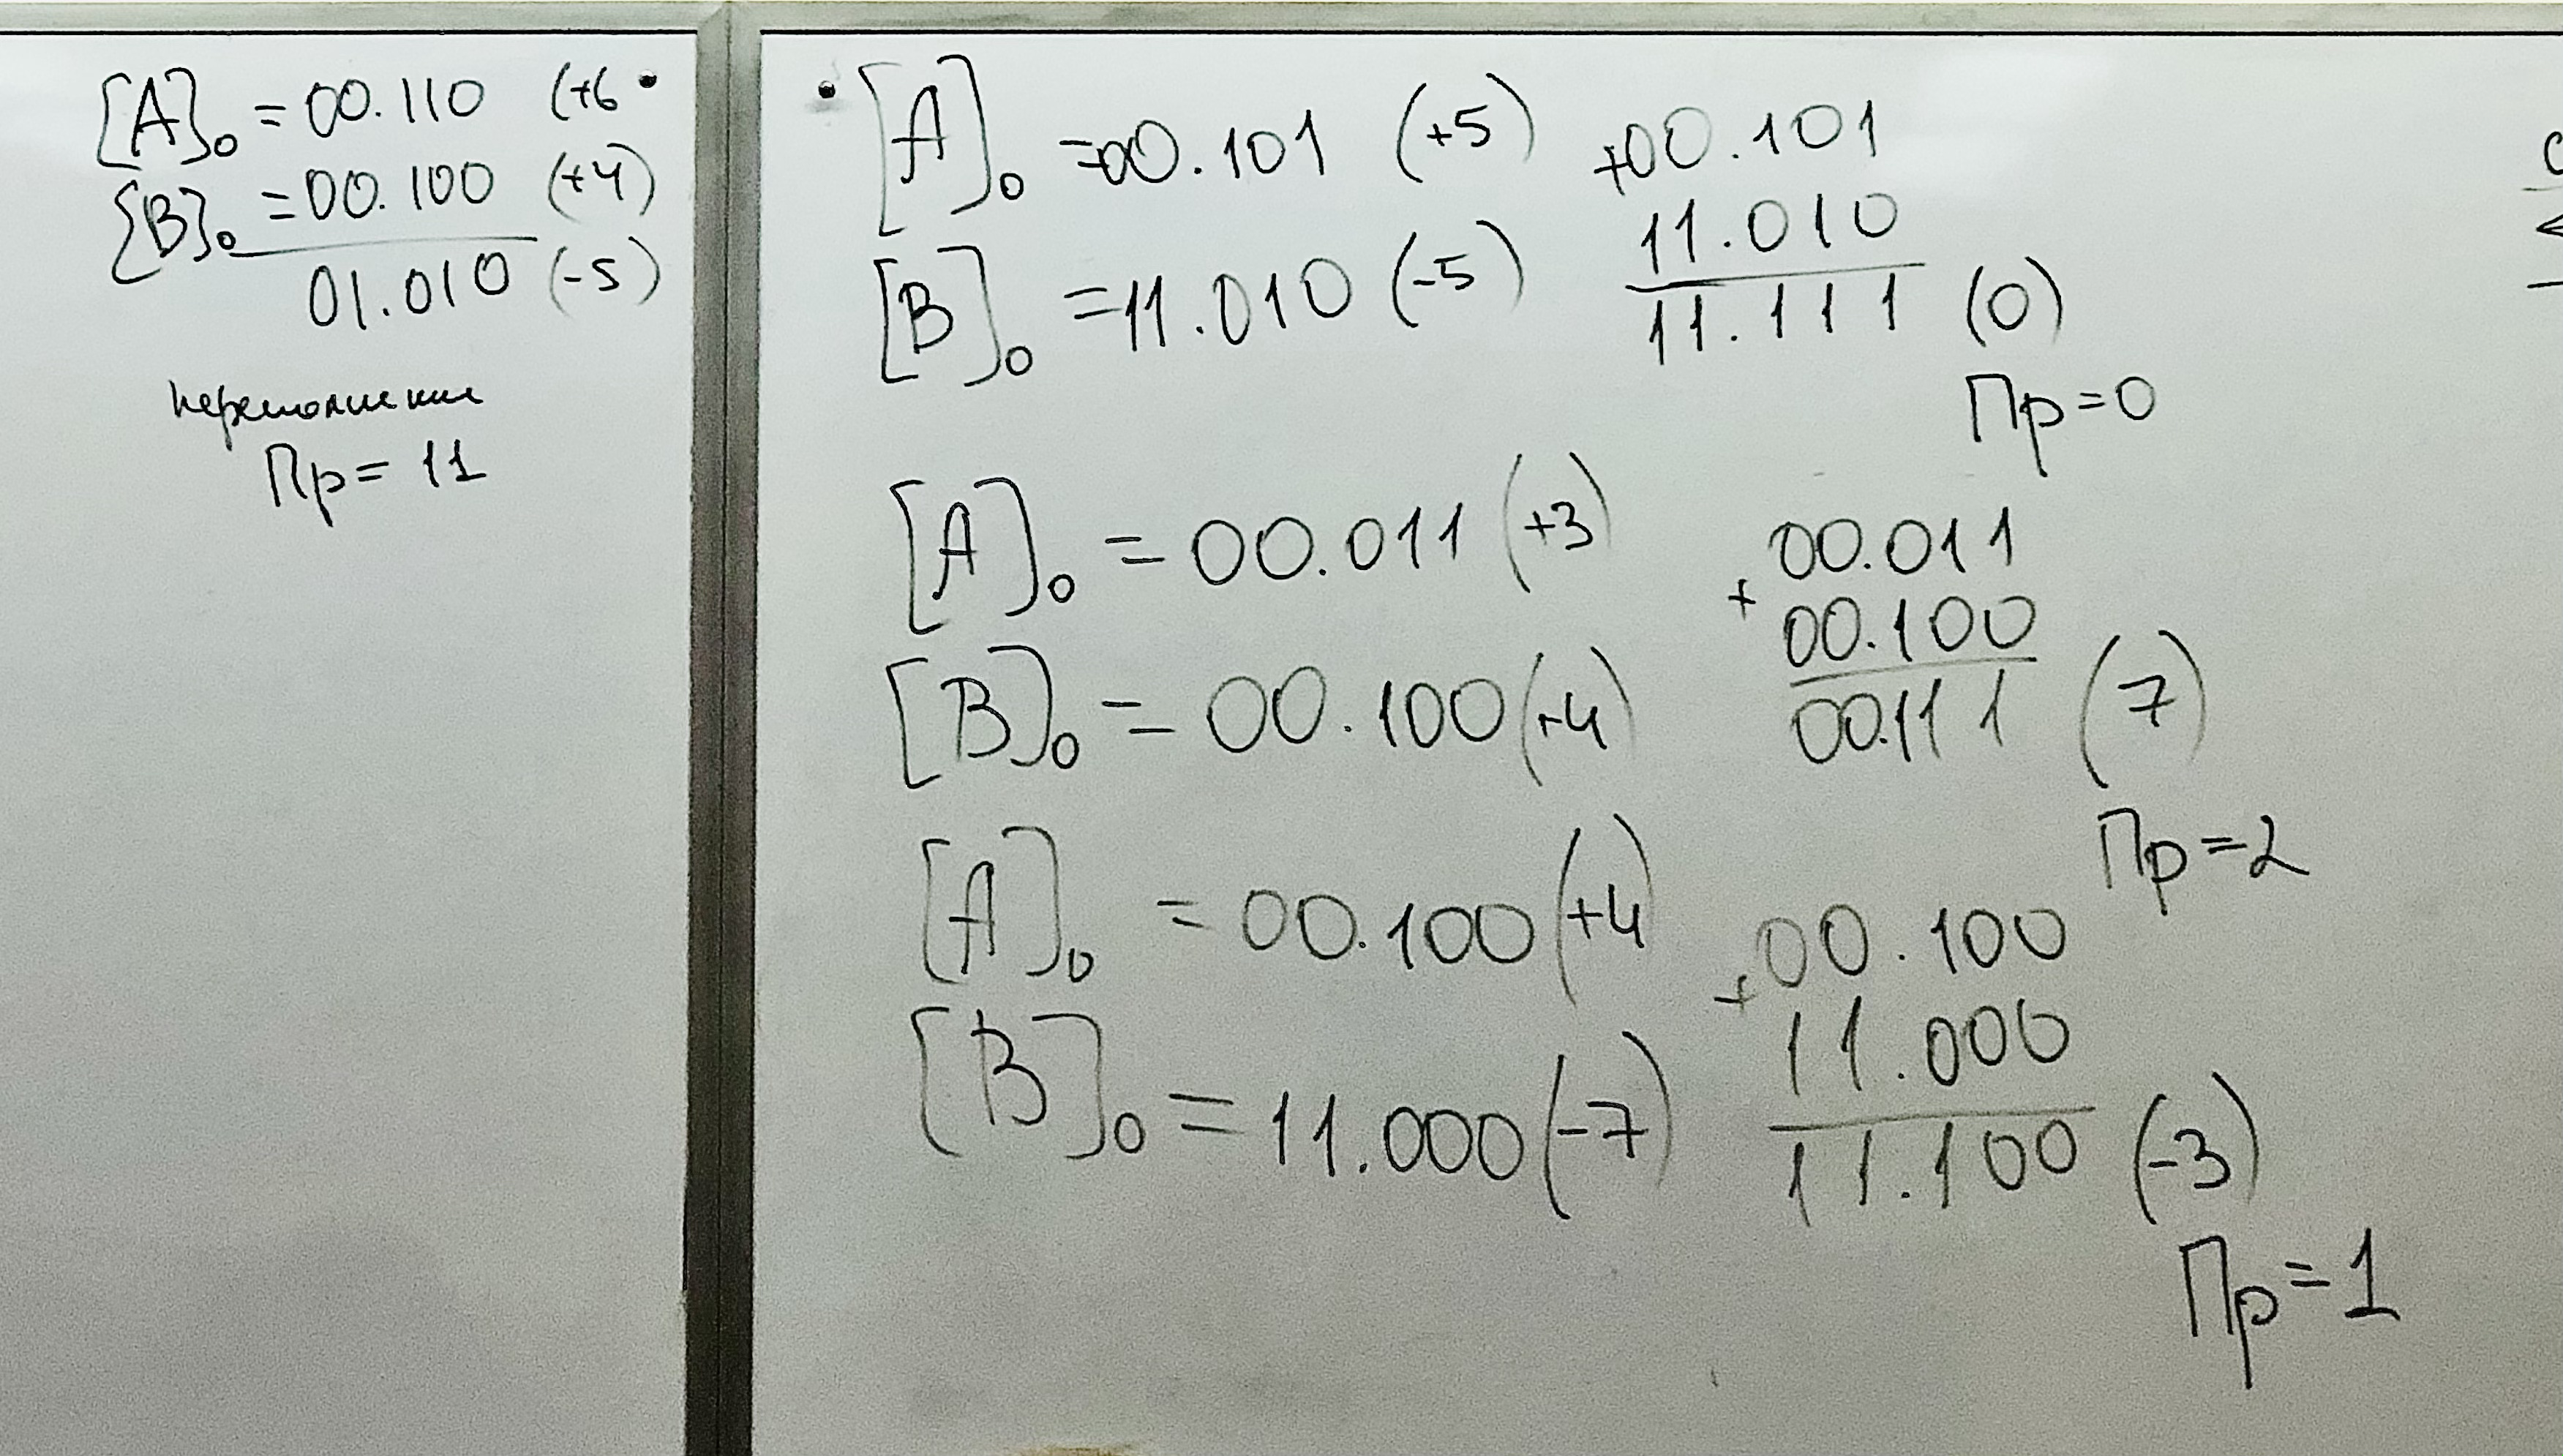 [A]₀ = 00.110 (+6
[B]₀ = 00.100 (+4)
01.010 (-5)
переполнение
Пр = 11
[A]₀ = 00.101 (+5)
[B]₀ = 11.010 (-5)
+00.101
11.010
11.111 (0)
Пр = 0
[A]₀ = 00.011 (+3)
[B]₀ = 00.100 (+4)
00.011
+
00.100
00.111 (7)
Пр = 2
[A]₀ = 00.100 (+4)
[B]₀ = 11.000 (-7)
00.100
+
11.000
11.100 (-3)
Пр = 1